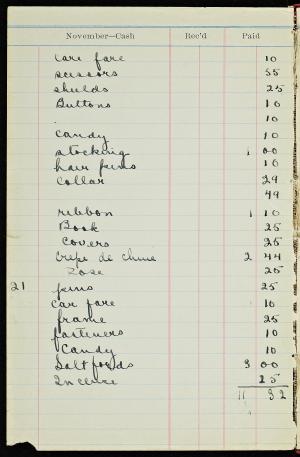 November—Cash Rec'd Paid
Care fare 10
scissors 55
shields 25
Buttons 10
. 10
Candy 10
stocking 1 00
hair pins 10
Collar 29
49
ribbon 1 10
Book 25
Covers 25
Crepe de chine 2 44
Rose 25
21 pins 25
Car fare 10
frame 25
fasteners 10
Candy 10
Saltfords 3 00
25
11 32